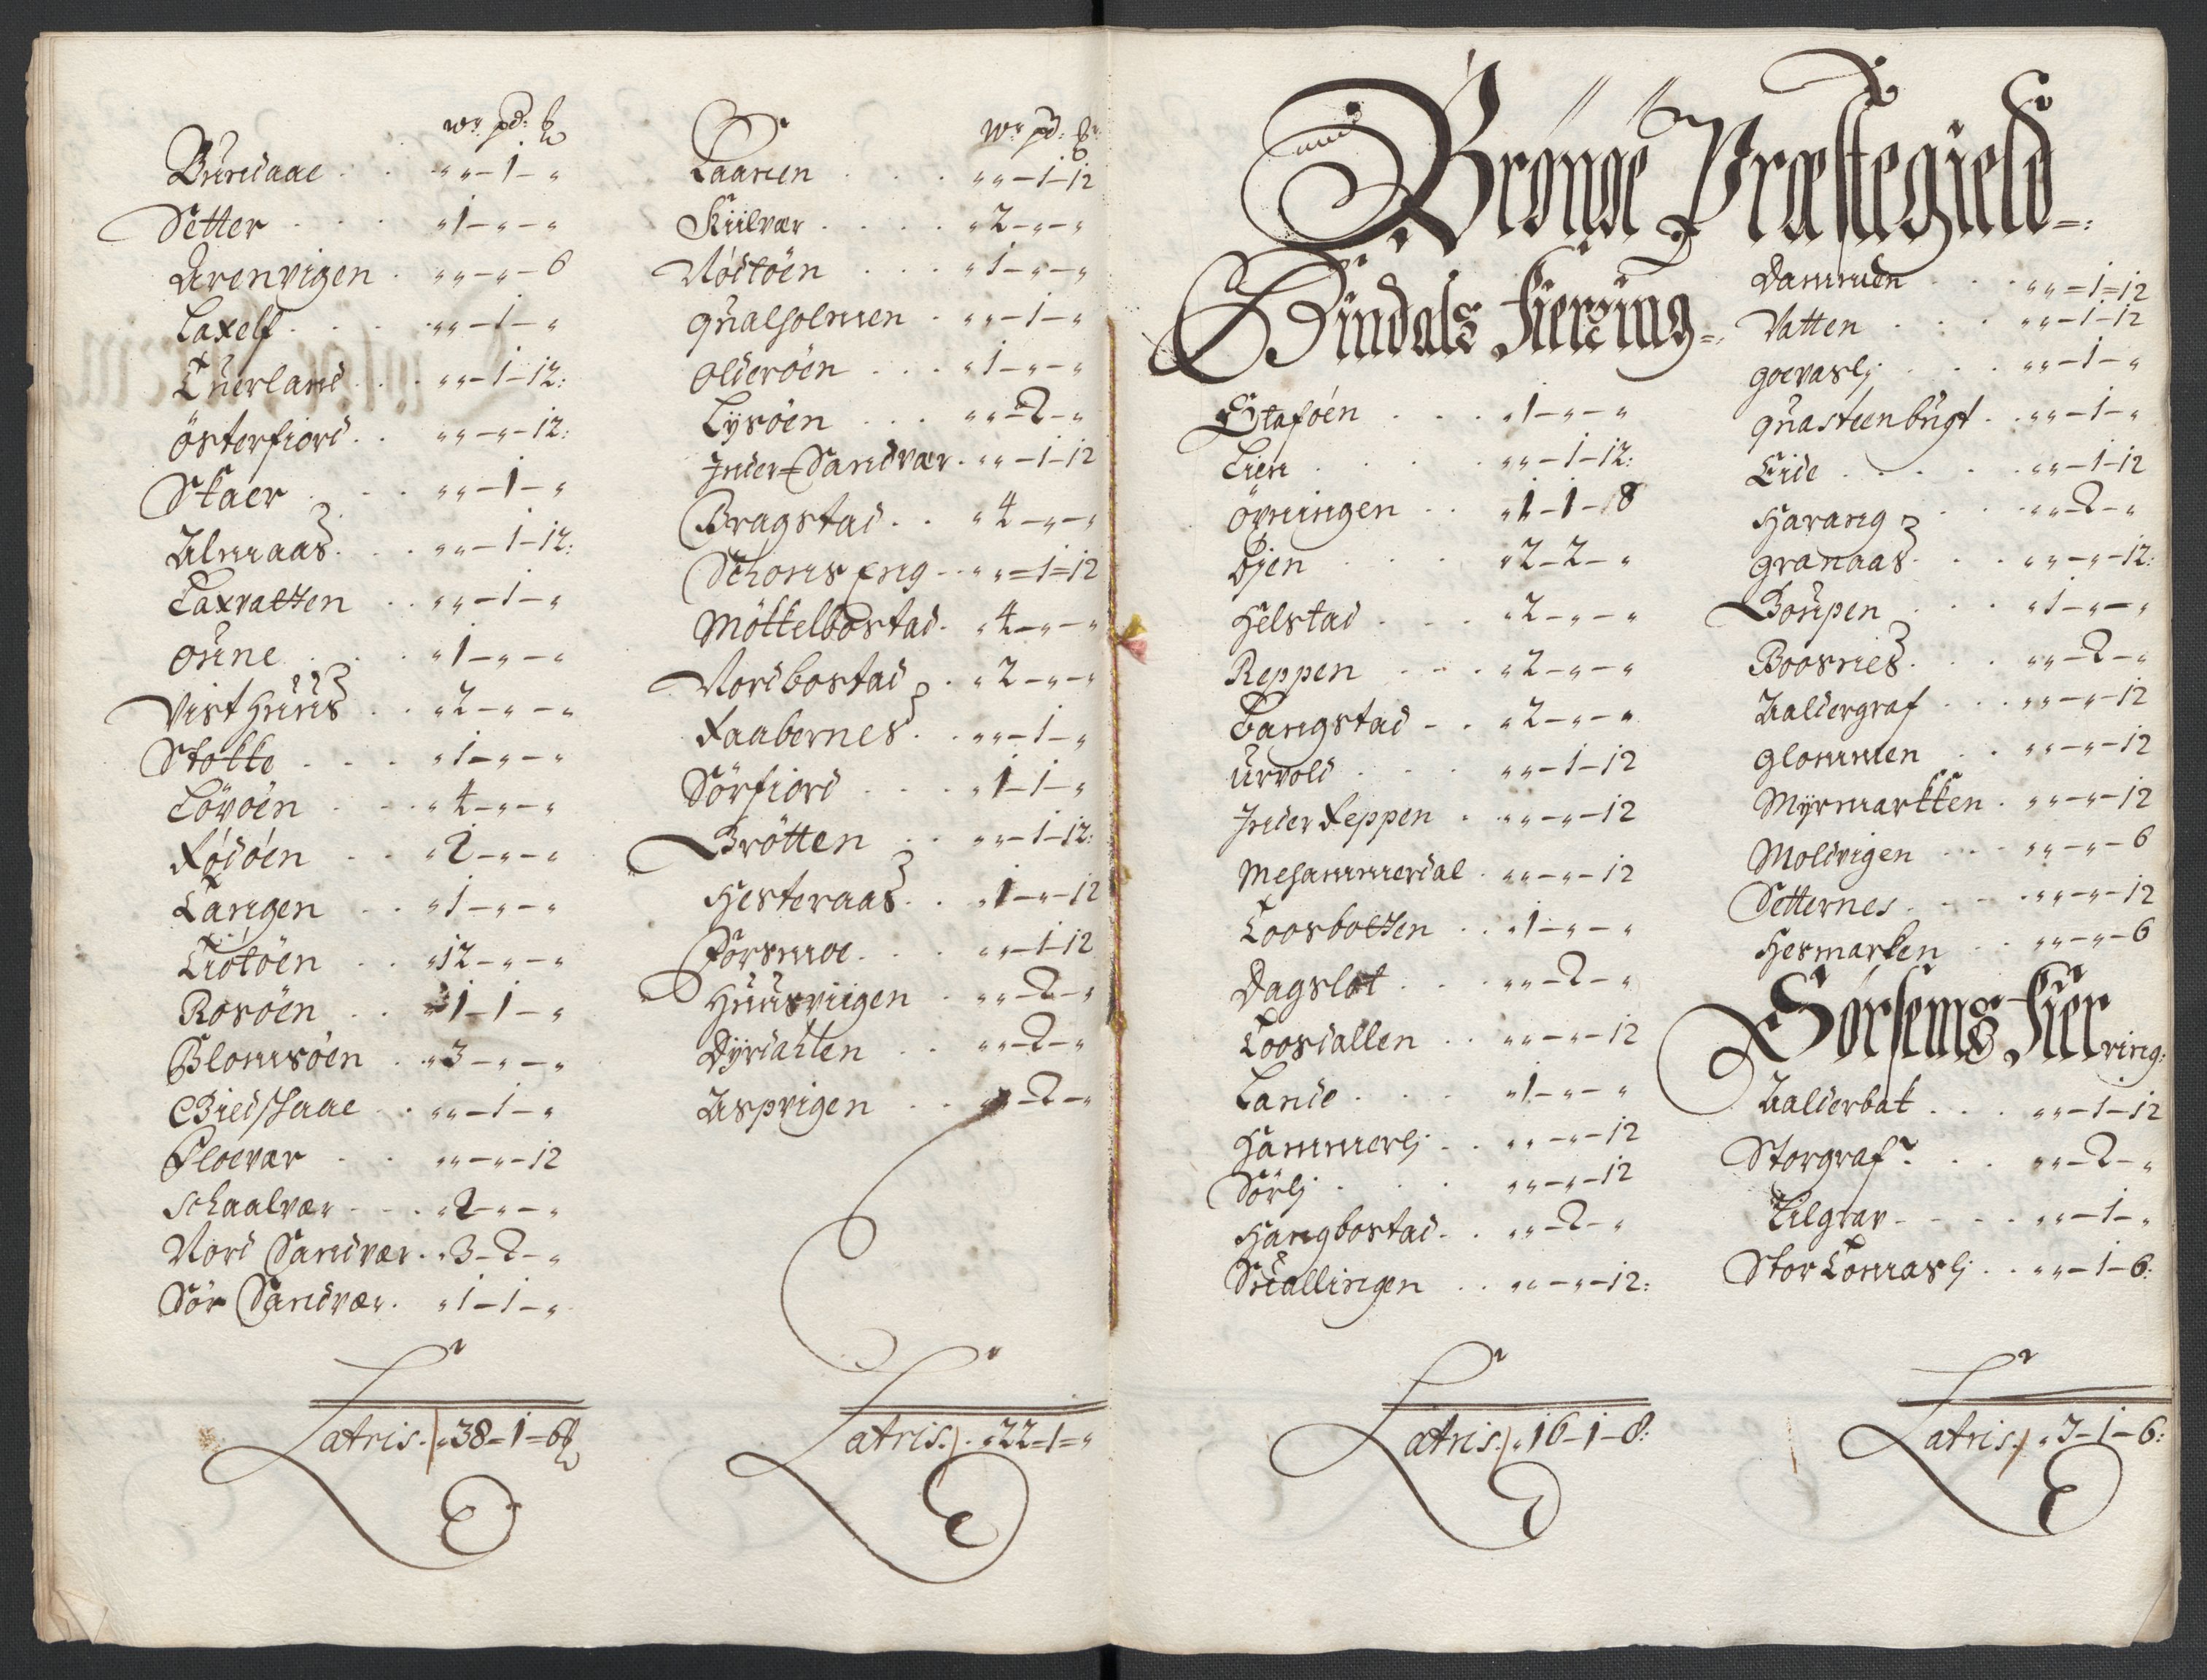 wr pd: ℔
Bundaae . . „ „ - 1 - „
Setter . . . „ 1 - „ - „
Arenvigen . „ „ - „ - 6
Laxelf . . . „ „ - 1 - „
Tuerland . . „ „ - 1 - 12:
Österfiord . . „ „ - „ - 12:
Skaer . . . „ „ - 1 - „
Almaas . . . „ „ - 1 - 12:
Laxvatten . . „ „ - 1 - „
Oune . . . „ 1 - „ - „
Vist Huus . . „ 2 - „ - „
Stokke . . . „ 1 - „ - „
Lövöen . . . „ 4 - „ - „
Rödöen . . „ 2 - „ - „
Tangen . . „ 1 - „ - „
Tiötöen . . „ 12 - „ - „
Rosöen . . „ 1 - 1 - „
Blomsöen . „ 3 - „ - „
Giedskaae . . „ „ - 1 - „
Floevær . . „ „ - „ - 12
Schaalvær . . . „ 2 - „ - „
Nord Sandvær . „ 3 - 2 - „
Sör Sandvær . „ 1 - 1 - „
Latris . „ 38 - 1 - 6 ℔
wr pd: ℔
Laanen . . . „ „ - 1 - 12
Kiilvær . . . . „ 2 - „ - „
Nödtöen . . . „ 1 - „ - „
Qualholmen . „ „ - 1 - „
Olderöen . . . „ 1 - „ - „
Lysöen . . . „ „ - 2 - „
Inder Sandvær . „ „ - 1 - 12
Bragstad . . „ 4 - „ - „
Schomseng . . „ „ = 1 = 12
Mökkelbostad . „ 4 - „ - „
Nordbostad . „ 2 - „ - „
Faabernes . . „ „ - 1 - „
Sörfiord . . . „ 1 - 1 - „
Brötten . . „ „ - 1 - 12:
Hesteraas . . „ 1 - „ - 12
Forsmoe . . . „ „ - 1 - 12
Huusviigen . „ „ - 2 - „
Dyrdalten . . „ „ - 2 - „
Aspvigen . . „ „ - 2 - „
Latris . „ 22 - 1 = „
Brönöe Præstegield
Bindals Fierring
Staföen . . . „ 1 - „ - „
Lien . . . . „ „ - 1 - 12:
Övningen . . „ 1 - 1 - 18
Öjen . . . „ 2 - 2 - „
Helstad . . . „ 2 - „ - „
Reppen . . . „ 2 - „ - „
Bangstad . . „ 2 - „ - „
Urvold . . . „ „ - 1 - 12
Inder Reppen . „ „ - „ - 12
Mehammerdal . „ „ - „ - 12
Toosbotten . . „ 1 - „ - „
Dagslot . . . „ „ - 2 - „
Toosdallen . . „ „ - „ - 12
Lande . . . „ 1 - „ - „
Hammerlj . . „ „ - „ - 12
Sörlj . . . „ „ - „ - 12
Hangbostad . . „ „ - 2 - „
Skiallingen . . „ „ - „ - 12:
Latris „ 16 - 1 - 8:
Dammen . . . „ „ = 1 = 12
Vatten . . . „ „ - 1 - 12
Goevaslj . . . „ „ - 1 - „
Quasteenbugt . . „ „ - 1 - „
Eide . . . . „ „ - 1 - 12
Harang . . „ „ - 2 - „
Granaas . . . „ „ - „ - 12:
Boupen . . . „ 1 - „ - „
Boosnes . . . „ „ - 2 - „
Aaldergraf . . . „ „ - „ - 12
Glommen . . „ „ - „ - 12
Myrmarkken . „ „ - „ - 12
Moldvigen . . . „ „ - „ - 6
Setternes . . . . „ „ - „ - 12
Hesmarken . . „ „ - „ - 6
Sörsems Fierring:
Aalderbak . . . „ „ - 1 - 12
Storgraf . . . „ „ - 2 - „
Tilgrav . . . . „ „ - 1 - „
Stor Tomaslj . . „ „ - 1 - 6:
Latris „ 3 - 1 - 6: